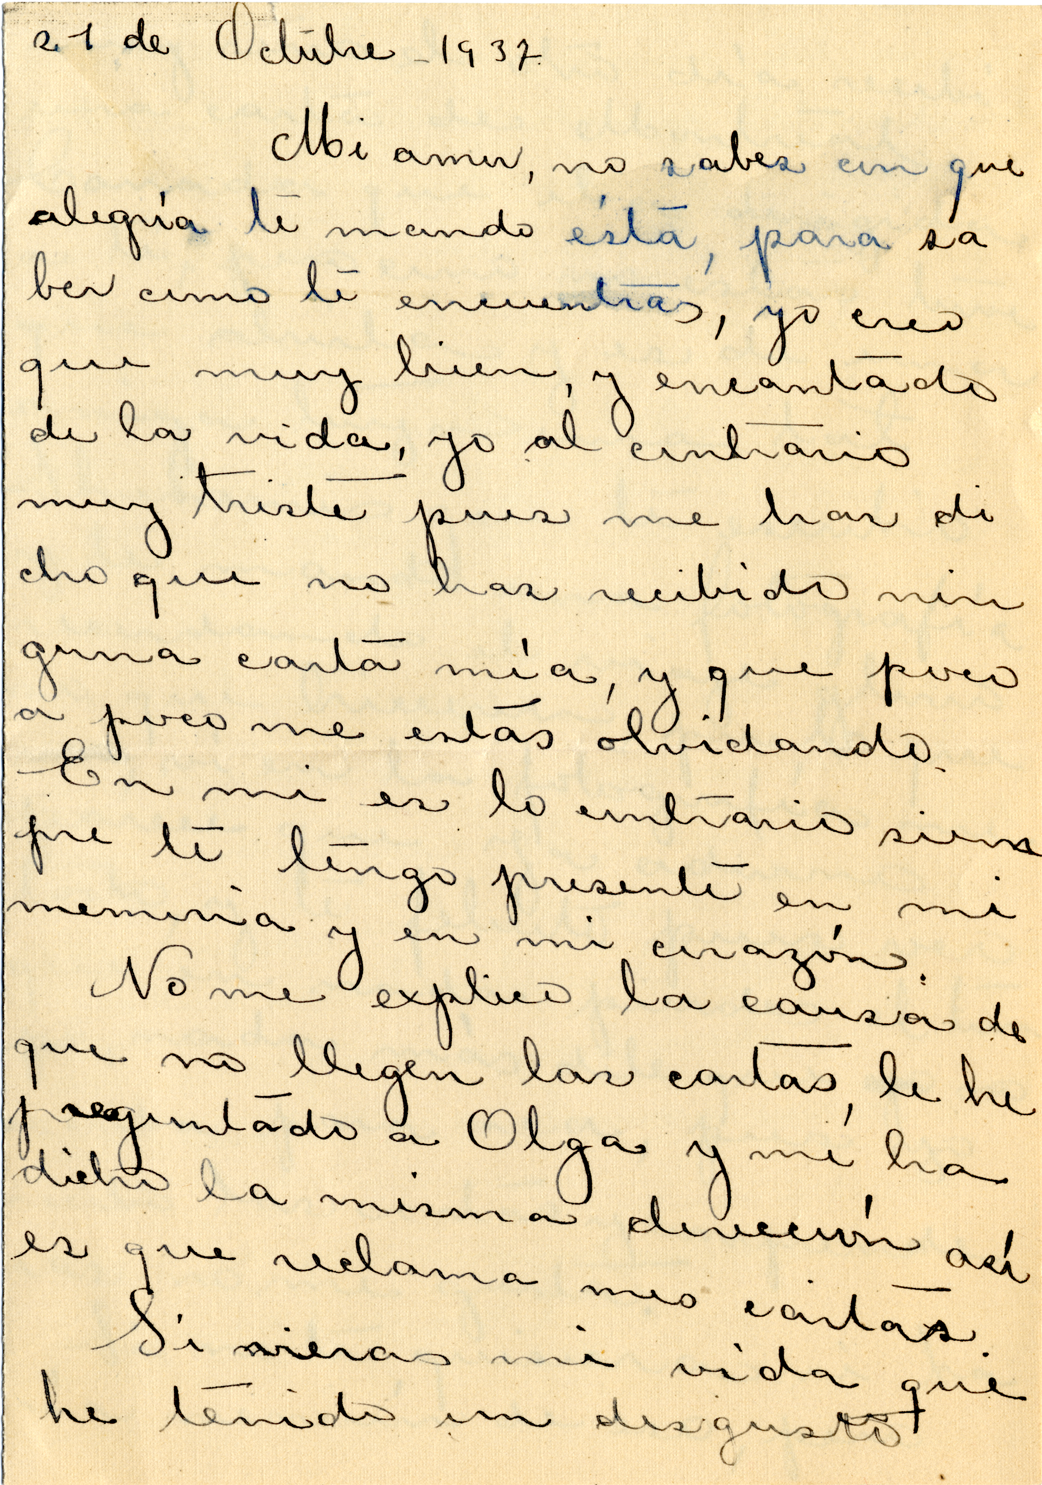 21 de Octubre - 1937.
Mi amor, no sabes con que
alegría te mando ésta, para sa
ber como te encuentras, yo creo
que muy bien, y encantado
de la vida, yo al contrario
muy triste pues me has di
cho que no has recibido nin
guna carta mía, y que poco
a poco me estás olvidando.
En mi es lo contrario siem
pre te tengo presente en mi
memoria y en mi corazón.
No me explico la causa de
que no llegen las cartas, le he
preguntado a Olga y me ha
dicho la misma dirección así
es que reclama mis cartas.
Si vieras mi vida que
he tenido un disgusto